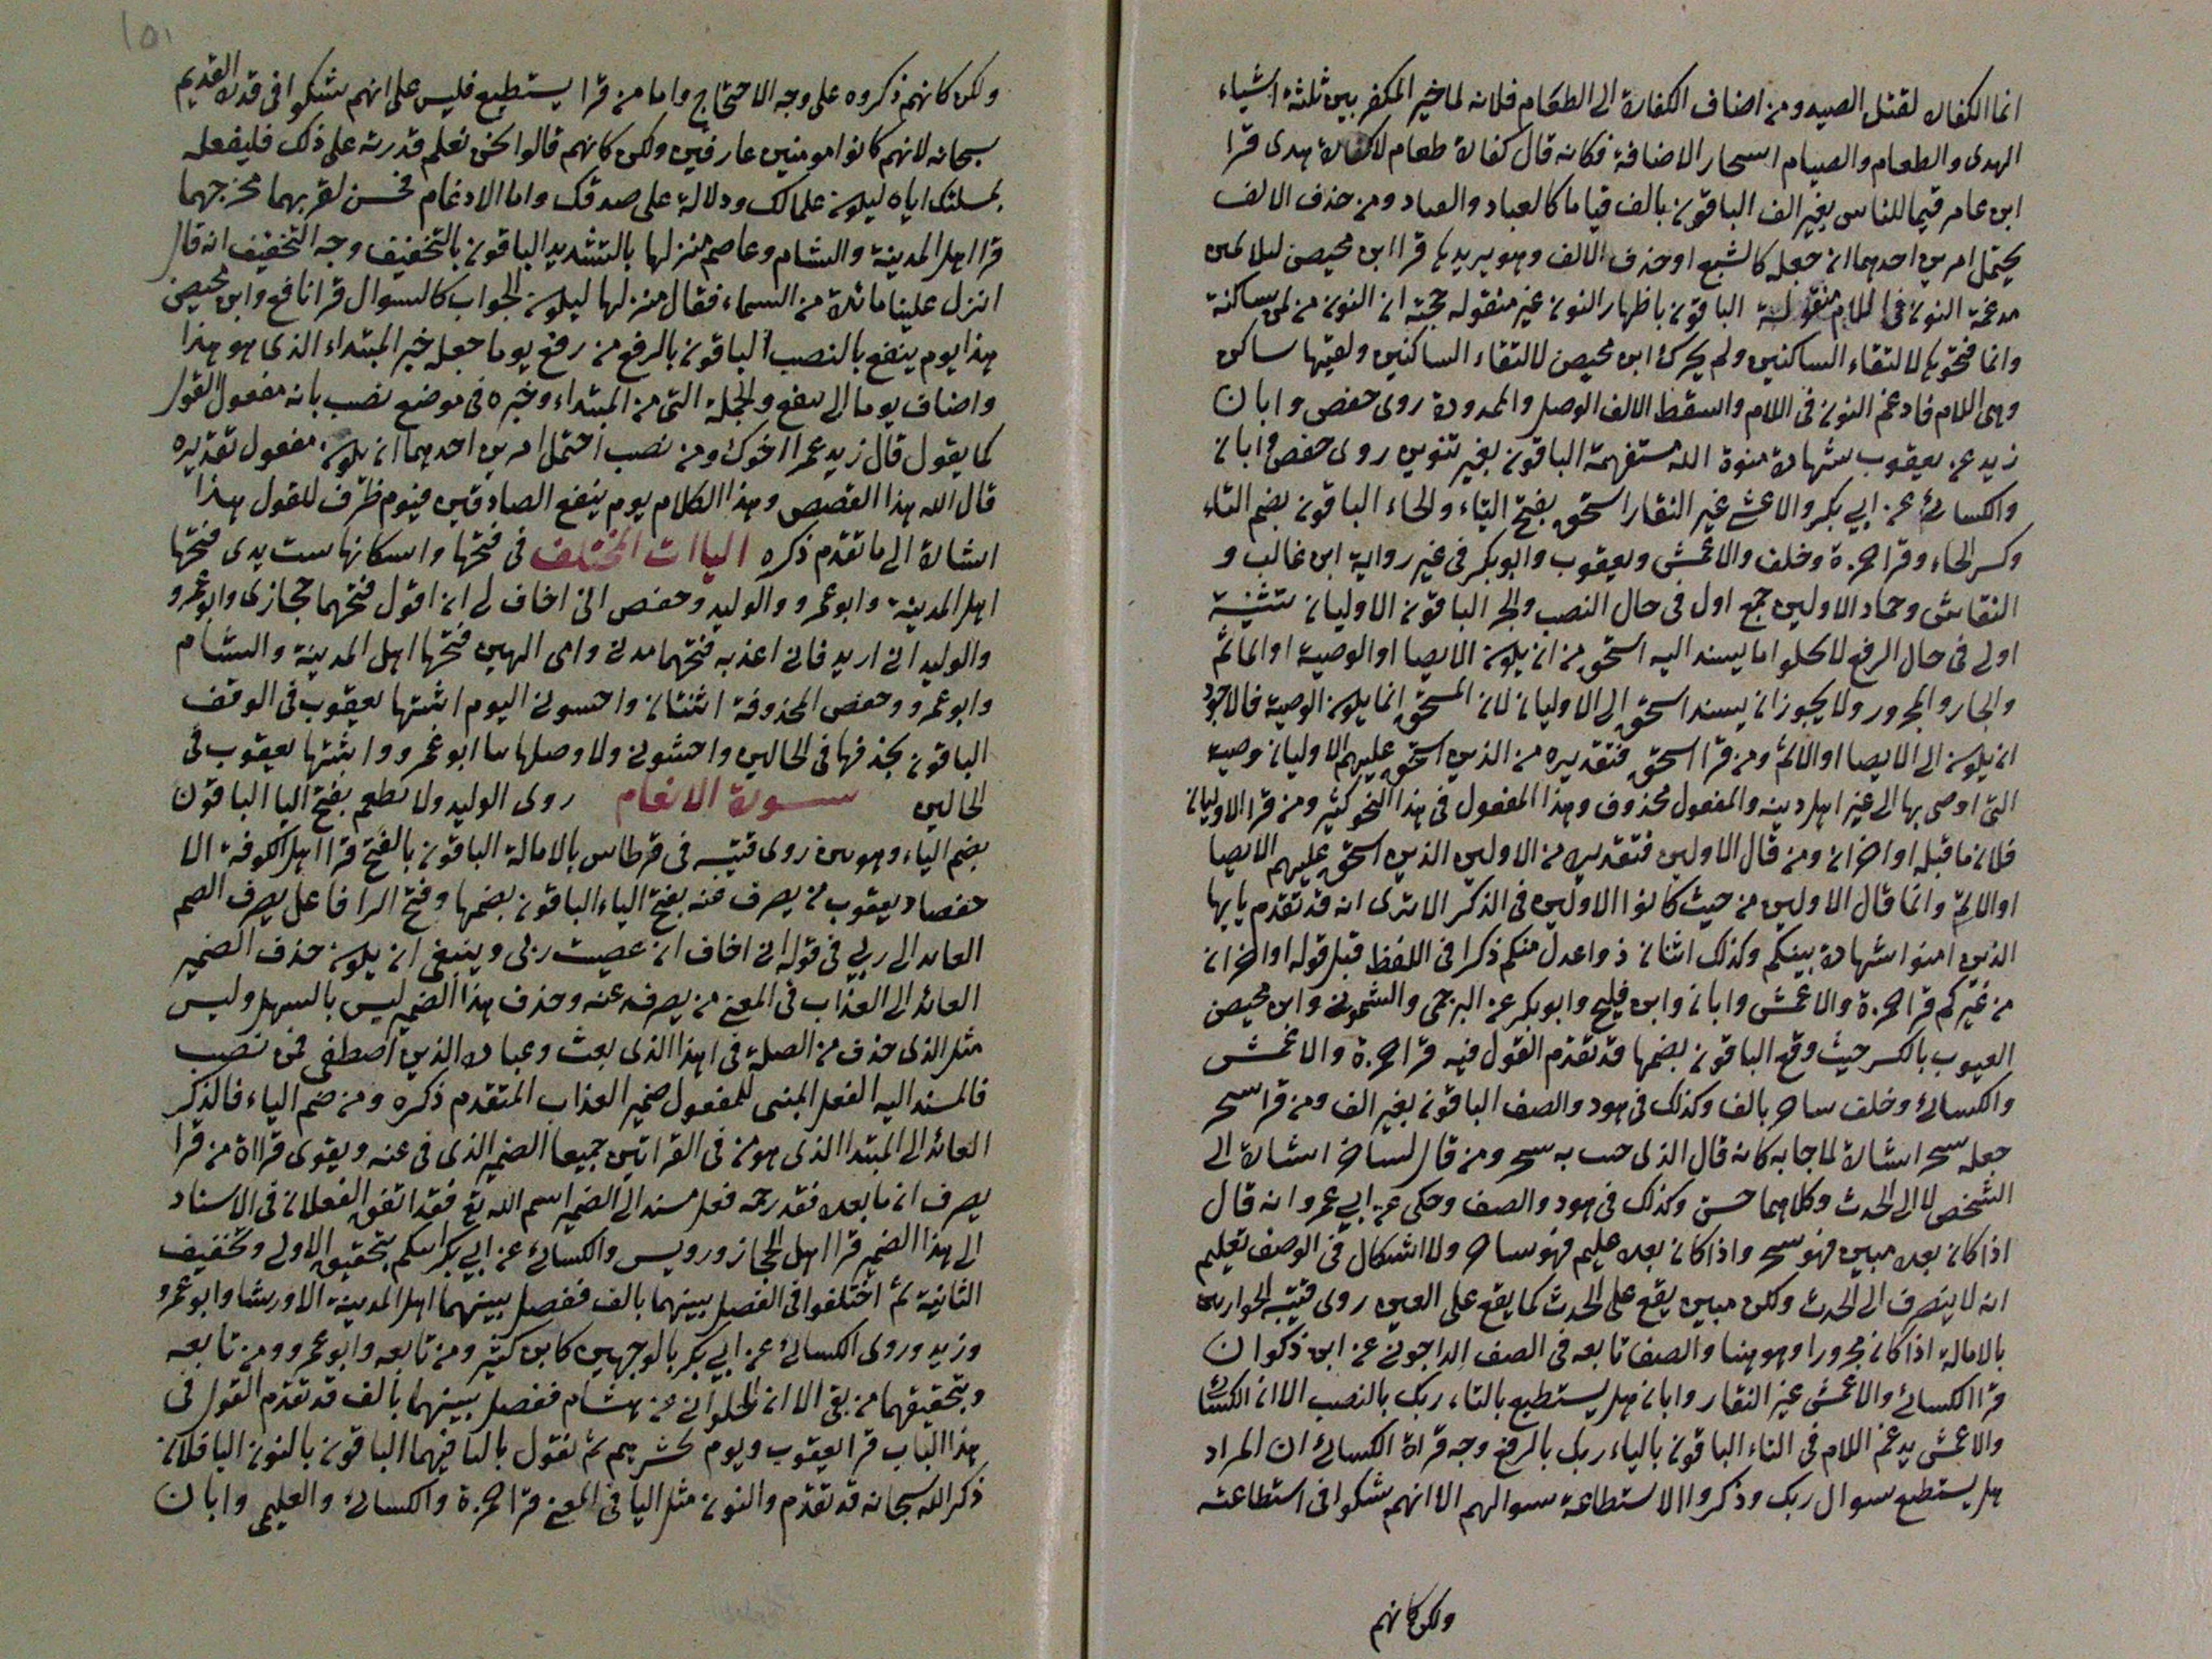 انما الكفارة لقتل الصيد ومن اضاف الكفارة الى الطعام فلانه لما خير المكفر بين ثلثة اشياء
الهدى والطعام والصيام استجاز الاضافة فكانه قال كفارة طعام لا كفارة هدى قرا
ابن عامر قيما للناس بغير الف الباقون بالف قياما كالعياد والعباد ومن حذف الالف
يحتمل امرين احدهما ان جعله كالشبع او حذف الالف وهو يريدها قرا ابن محيصن لملاثمين
مدغمة النون فى اللام منقولة الباقون باظهار النون غير منقوله حجته ان النون من لمن ساكنة
وانما فتحوها لالتقاء الساكنين ولم يحرك ابن محيصن لالتقاء الساكنين ولقيها ساكن
وهى اللام فادغم النون فى اللام واسقط الالف الوصل والممدودة روى حفص وابان
زيد عن يعقوب شهادة منونة الله مستفهمة الباقون بغير تنوين روى حفص وابان
والكسائى عن ابي بكر والاعشى غير النقار استحق بفتح التاء والحاء الباقون بضم التاء
وكسر الحاء وقرا حمزة وخلف والاعمش ويعقوب وابوبكر فى غير رواية ابن غالب و
النقاش وحماد الاولين جمع اول فى حال النصب والجر الباقون الاوليان تثنية
اولى فى حال الرفع لا يخلو ما يسند اليه استحق من ان يكون الايصا او الوصية او الماثم
والجار والمجرور ولا يجوز ان يسند استحق الى الاوليان لان المستحق انما يكون الوصية فالاجود
ان يكون الى الايصا او الاثم ومن قرا استحق فتقديره من الذين استحق عليهم الاوليان وصية
التى اوصى بها الى غير اهل دينه والمفعول محذوف وهذا المفعول فى هذا النحو كثير ومن قرا الاوليان
فلان ما قبله او اخران ومن قال الاولين فتقديره من الاولين الذين استحق عليهم الايصا
او الاثم وانما قال الاولين من حيث كانوا الاولين فى الذكر الا ترى انه قد تقدم يا ايها
الذين امنوا شهادة بينكم وكذلك اثنان ذوا عدل منكم ذكرا فى اللفظ قبل قوله او اخران
من غيركم قرا حمزة والاعمش وابان وابن فليح وابوبكر عن البرجمى والشمونى وابن محيصن
الغيوب بالكسر حيث وقع الباقون بضمها قد تقدم القول فيه قرا حمزة والاعمش
والكسائى وخلف ساحر بالف وكذلك فى هود والصف الباقون بغير الف ومن قرا سحر
جعله سحر اشارة لما جا به كانه قال الذى به سحر ومن قال لساحر اشارة الى
الشخص لا الى الحدث وكلاهما حسن وكذلك فى هود والصف وحكى عن ابي عمرو انه قال
اذا كان بعده مبين فهو سحر واذا كان بعده عليم فهو ساحر ولا اشكال فى الوصف بعليم
انه لا ينصرف الى الحدث ولكن مبين يقع على الحدث كما يقع على العين روى قتيبه الحواريين
بالامالة اذا كان مجرورا وهو ههنا والصف تابعه فى الصف الداجونى عن ابن ذكوان
قرا الكسائى والاعمش غير النقار وابان هل يستطيع بالتاء ربك بالنصب الا ان الكسائى
والاعمش يدغم اللام فى التاء الباقون بالياء ربك بالرفع وجه قراة الكسائى ان المراد
هل يستطيع سوال ربك وذكروا الاستطاعة سوالهم الا انهم شكوا فى استطاعته
ولكن كانهم
ولكن كانهم ذكروه على وجه الاحتجاج واما من قرا يستطيع فليس على انهم شكوا فى قدرة القديم
سبحانه لانهم كانوا مومنين عارفين ولكن كانهم قالوا نحن نعلم قدرته على ذلك فليفعله
بمسلتك اياه ليكون علما لك ودلالة على صدقك واما الادغام فحسن لقربهما مخرجهما
قرا اهل المدينة والشام وعاصم منزلها بالتشديد الباقون بالتخفيف وجه التخفيف انه قال
انزل علينا مائدة من السماء فقال منزلها ليكون الجواب كالسوال قرا نافع وابن محيصن
هذا يوم ينفع بالنصب الباقون بالرفع من رفع يوما جعله خبر المبتداء الذى هو هذا
واضاف يوما الى ينفع والجملة التى من المبتداء وخبره فى موضع نصب بانه مفعول القول
كما يقول قال زيد عمرا اخوك ومن نصب احتمل امرين احدهما ان يكون مفعول تقديره
قال الله هذا القصص وهذا الكلام يوم ينفع الصادقين فيوم ظرف للقول هذا
اشارة الى ما تقدم ذكره الياات المختلف فى فتحها واسكانها ست يدى فتحها
اهل المدينة وابوعمرو والوليد وحفص انى اخاف لى ان اقول فتحهما حجازى وابوعمرو
والوليد انى اريد فانى اعذبه فتحهما مدنى وامى الهين فتحها اهل المدينة والشام
وابوعمرو وحفص المحذوفة اثنتان واخشونى اليوم اثبتها يعقوب فى الوقف
الباقون بحذفها فى الحالين واخشونى ولا وصلها بيا ابوعمرو واثبتها يعقوب فى
الحالين سورة الانعام روى الوليد ولا يطعم بفتح اليا الباقون
بضم الياء وهو روى قتيبه فى قرطاس بالامالة الباقون بالفتح قرا اهل الكوفة الا
حفصا ويعقوب من يصرف عنه بفتح الياء الباقون بضمها وفتح الرا فاعل يصرف الضم
العائد الى ربى فى قوله انى اخاف ان عصيت ربى وينبغى ان يكون حذف الضمير
العائد الى العذاب فى المعنى من يصرفه عنه وحذف هذا الضمير ليس بالسهل وليس
مثل الذى حذف من الصلة فى اهذا الذى بعث وعباده الذين اصطفى فمن نصب
فالمسند اليه الفعل المبنى للمفعول ضمير العذاب المتقدم ذكره ومن ضم الياء فالذكر
العائد الى المبتدا الذى هو من فى القراتين جميعا الضمير الذى فى عنه ويقوى قراة من قرا
يصرف ان ما بعده فقد رحمه فعل مسند الى الضمير اسم الله تع فقد اتفق الفعلان فى الاسناد
الى هذا الضمير قرا اهل الحجاز ورويس والكسائى عن ابي بكر ائنكم بتحقيق الاولى وتخفيف
الثانية ثم اختلفوا فى الفصل بينهما بالف ففصل بينهما اهل المدينة الا ورشا وابوعمرو
وزيد وروى الكسائى عن ابي بكر بالوجهين كابن كثير ومن تابعه وابوعمرو ومن تابعه
وبتحقيقهما من بقى الا ان الحلوانى عن هشام ففصل بينهما بالف قد تقدم القول فى
هذا الباب قرا يعقوب ويوم نحشرهم ثم نقول باليا فيهما الباقون بالنون اليا فلان
ذكر الله سبحانه قد تقدم والنون مثل اليا فى المعنى قرا حمزة والكسائى والعليمى وابان